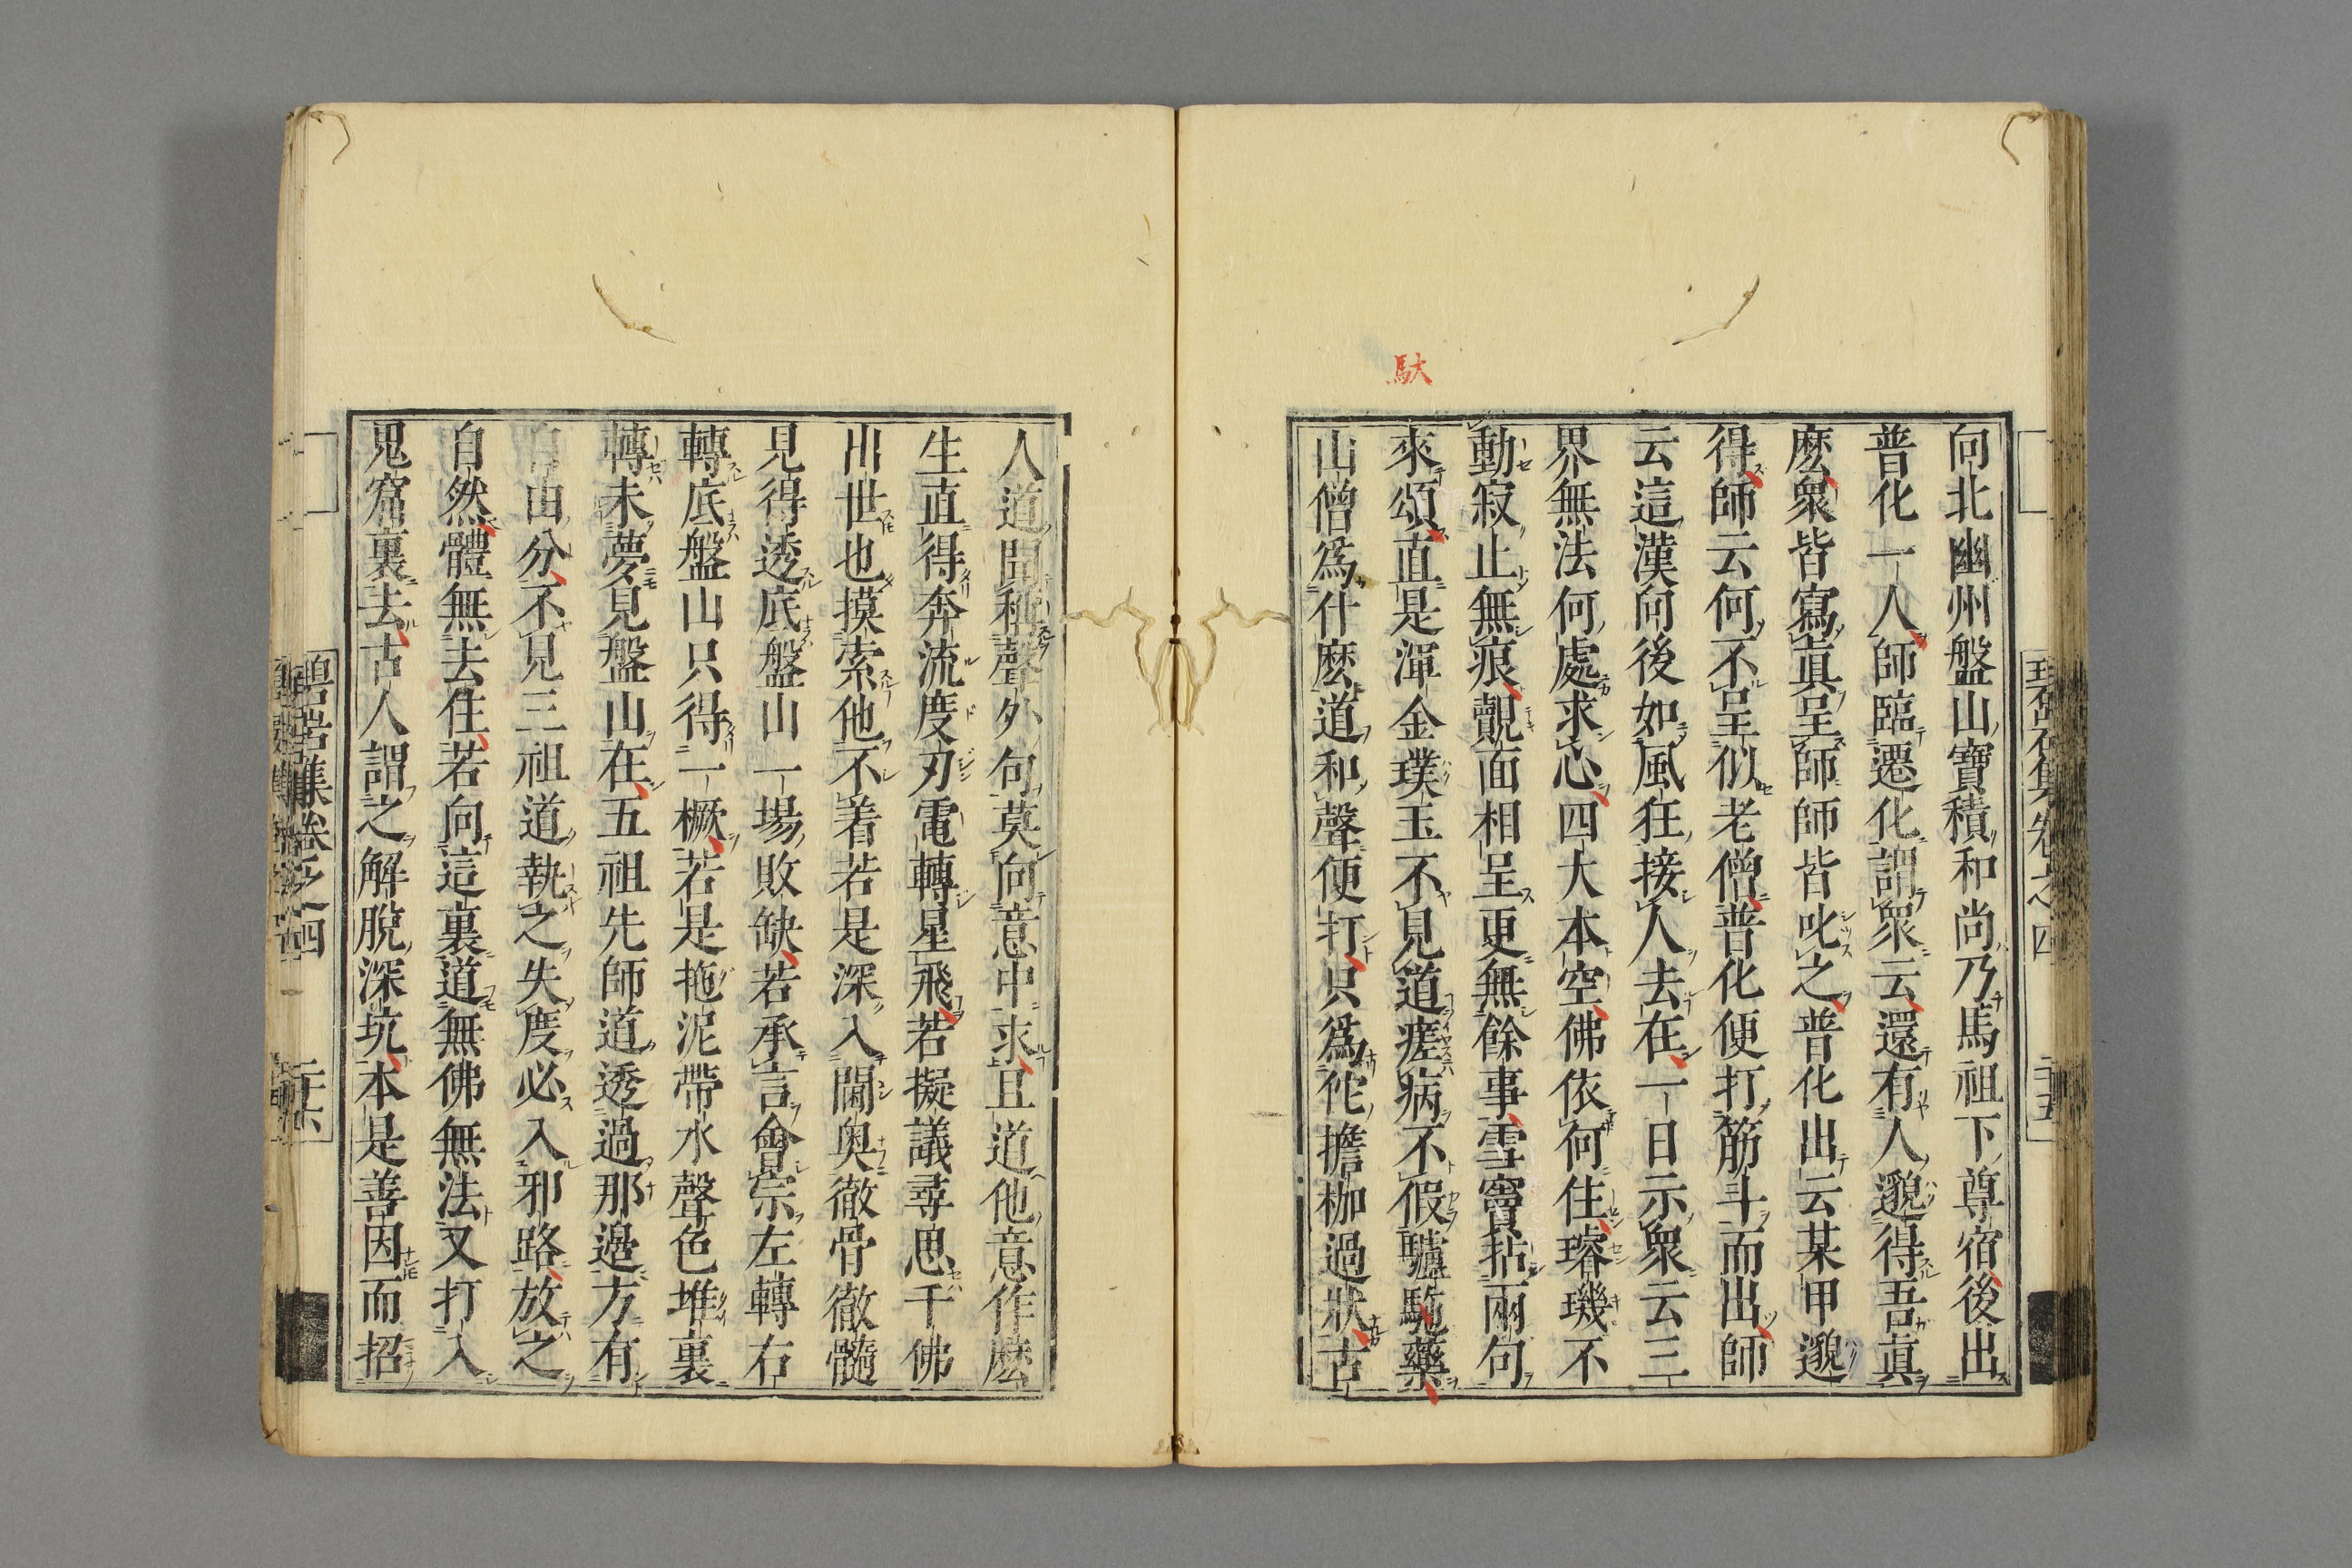 駄
向北幽州盤山寶積和尚乃馬祖下尊宿後出
普化一人師臨遷化謂衆云還有人邈得吾眞
麽衆皆寫眞呈師師皆叱之普化出云某甲邈
得師云何不呈似老僧普化便打筋斗而出師
云這漢向後如風狂接人去在一日示衆云三
界無法何處求心四大本空佛依何住璿璣不
動寂止無痕覿面相呈更無餘事雪竇拈兩句
來頌直是渾金璞玉不見道瘥病不假驢駞藥
山僧爲什麽道和聲便打只爲佗擔枷過狀古
碧岩集卷之四 二十五
人道聞稱聲外句莫向意中求且道他意作麽
生直得奔流度刃電轉星飛若擬議尋思千佛
出世也摸索他不着若是深入閫奥徹骨徹髓
見得透底盤山一場敗缺若承言會宗左轉右
轉底盤山只得一橛若是拖泥帶水聲色堆裏
轉未夢見盤山在五祖先師道透過那邊方有
自由分不見三祖道執之失度必入邪路放之
自然體無去住若向這裏道無佛無法又打入
鬼窟裏去古人謂之解脫深坑本是善因而招
碧岩集卷之四 二十六